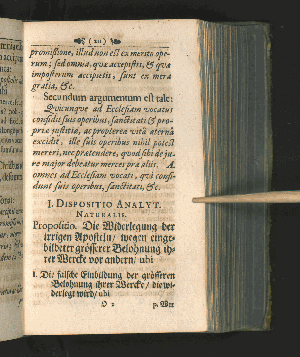 (211)
promissione, illud non est ex merito ope-
rum; sed omnia, quæ accepistis, & quæ
imposterum accipietis, sunt ex mera
gratia, &c.
Secundum argumentum est tale:
Quicunque ad Ecclesiam vocatus
confidit suis operibus, sanctitati & pro-
priæ justitiæ, ac propterea vitâ æternâ
excidit, ille suis operibus nihil potest
mereri, nec prætendere, quod sibi de ju-
re major debeatur merces præ aliis. A
omnes ad Ecclesiam vocati, qui confi-
dunt suis operibus, sanctitati, &c.
I. DISPOSITIO ANALYT.
NATURALIS.
Propositio. Die Widerlegung der
irrigen Aposteln / wegen einge-
bildeter grösserer Belohnung ih-
rer Wercke vor andern / ubi
1. Die falsche Einbildung der grösseren
Belohnung ihrer Wercke / die wi-
derlegt wird / ubi
O 2